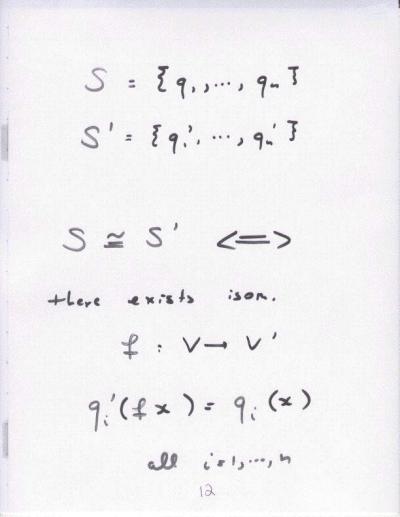 S = {q₁, ..., qₙ}
S' = {q₁', ..., qₙ'}
S ≅ S' <=>
there exists isom.
f : V → V'
qᵢ'(fx) = qᵢ(x)
all i=1, ..., n
12